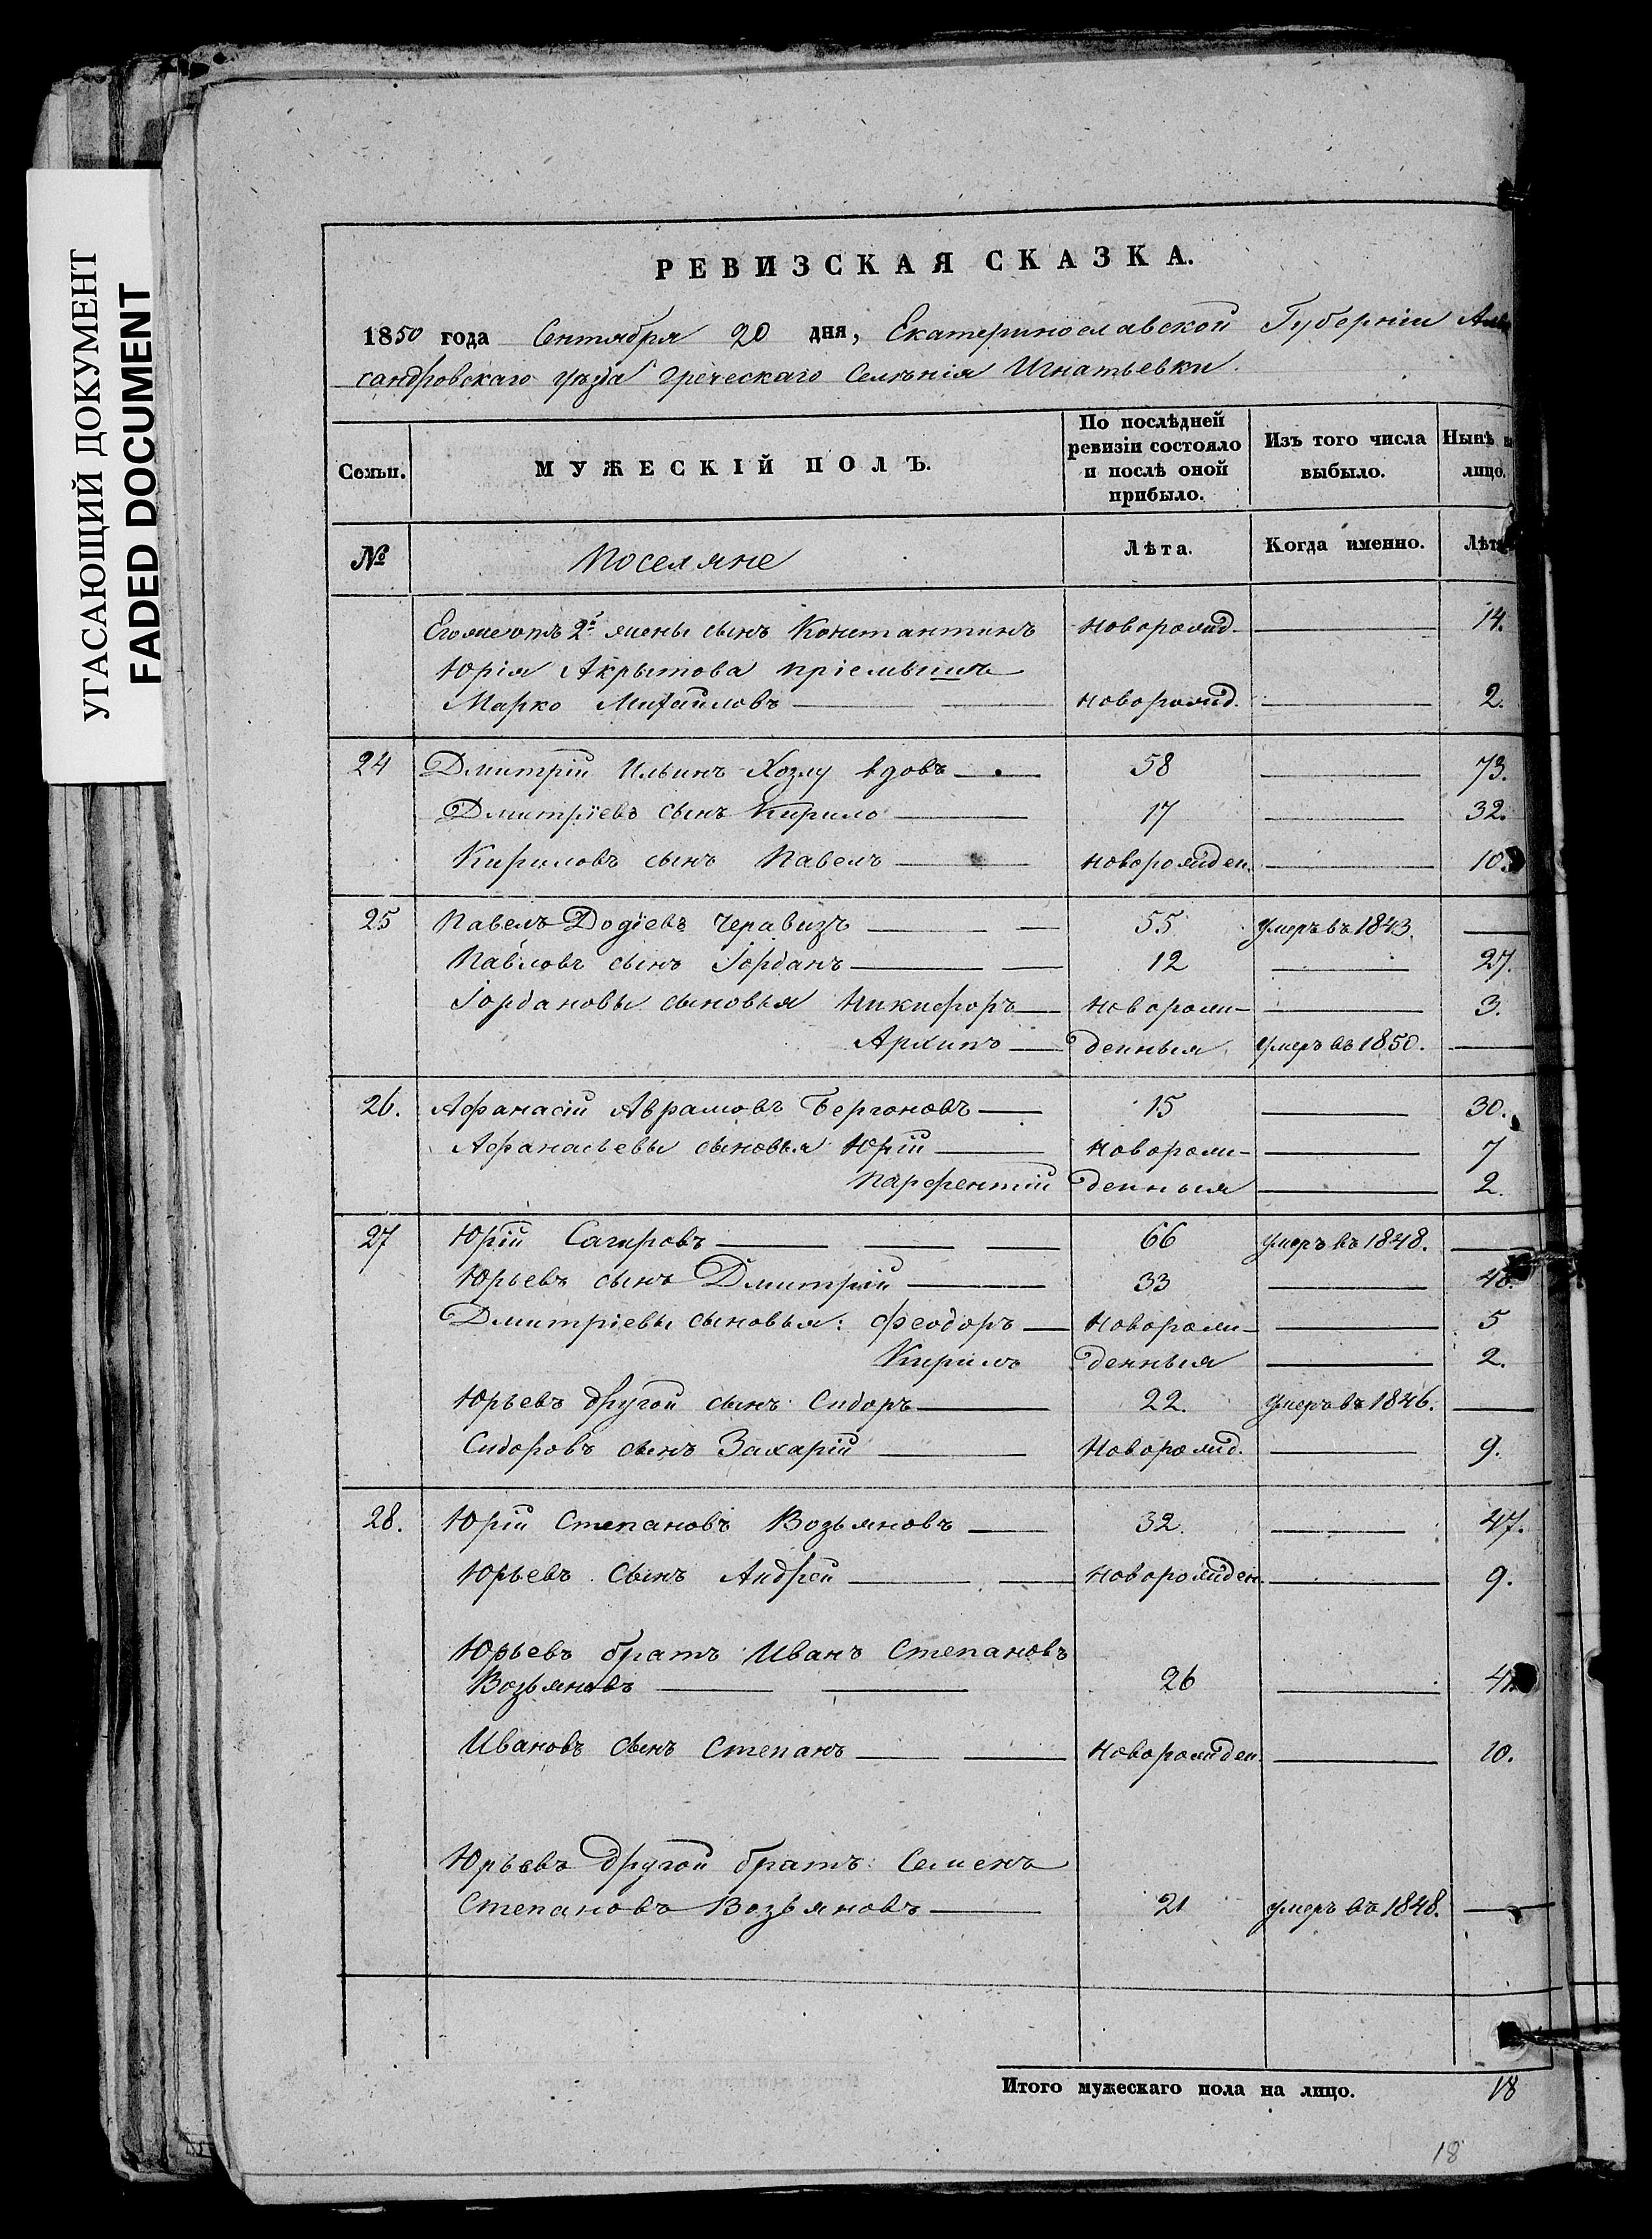 УГАСАЮЩИЙ ДОКУМЕНТ
FADED DOCUMENT
РЕВИЗСКАЯ СКАЗКА.
1850 года Сентября 20 дня, Екатеринославской Губерніи Алек
сандровскаго уѣзда греческаго Селѣнія Игнатьевки.
Семьи. МУЖЕСКІЙ ПОЛЪ. По послѣдней ревизіи состояло и послѣ оной прибыло. Изъ того числа выбыло. Нынѣ на лицо.
№ Поселяне Лѣта. Когда именно. Лѣта
Егоже отъ 2й жены сынъ Константинъ новорожд. 14.
Юрія Акрытова пріемышъ
Марко Михайловъ новорожд. 2.
24 Дмитрій Ильинъ Хозлу вдовъ 58 73.
Дмитріевъ сынъ Кирило 17 32.
Кириловъ сынъ Павелъ новорожден. 10.
25 Павелъ Додіевъ Черавизъ 55 умеръ въ 1843.
Павловъ сынъ Іорданъ 12 27.
Іордановы сыновья Никифоръ новорож- 3.
Архипъ денныя умеръ въ 1850.
26. Афанасій Аврамовъ Бергоновъ 15 30.
Афанасьевы сыновья Юрій новорож- 7
Парфентій денныя 2.
27 Юрій Сагировъ 66 умеръ въ 1848.
Юрьевъ сынъ Дмитрій 33 48.
Дмитріевы сыновья: Феодоръ новорож- 5
Кирилъ денныя 2.
Юрьевъ другой сынъ Сидоръ 22. умеръ въ 1846.
Сидоровъ сынъ Захарій Новорожд. 9.
28. Юрій Степановъ Возьяновъ 32. 47.
Юрьевъ Сынъ Андрей новорожден. 9.
Юрьевъ братъ Иванъ Степановъ
Возьяновъ 26 41.
Ивановъ сынъ Степанъ новорожден. 10.
Юрьевъ другой братъ Семенъ
Степановъ Возьяновъ 21 умеръ въ 1848.
Итого мужескаго пола на лицо. 18
18